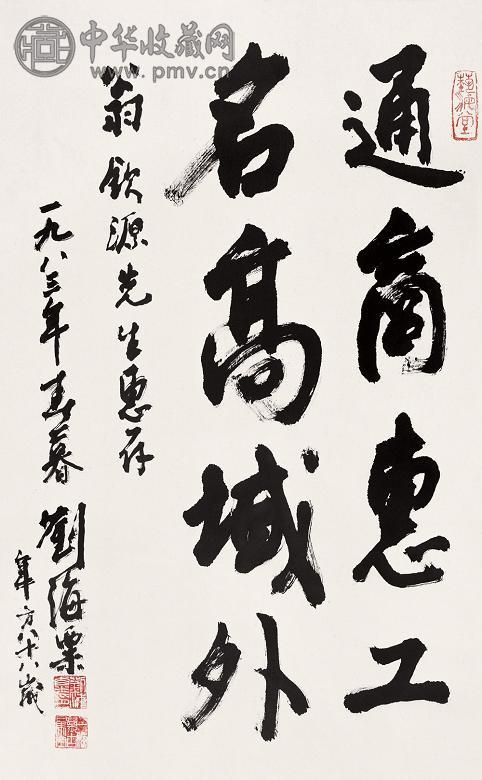 中华收藏网
www.pmv.cn
通商惠工
名高域外
翁欽源先生惠存
一九八三年春暮
劉海粟
年方八十八歲